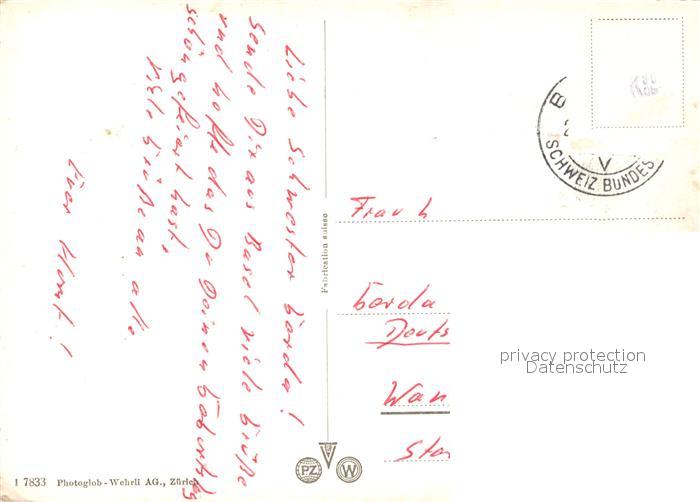 Liebe Schwester Gerda!
Sende Dir aus Basel viele Grüße
und hoffe das Du Deinen Geburtstag
schön gefeiert hast,
Viele Grüße an alle
Euer Horst!
Fabrication suisse
Frau
Gerda
Deuts
Wan
Sta
privacy protection
Datenschutz
B
SCHWEIZ BUNDES
V
PZ
W
I 7833 Photoglob-Wehrli AG., Zürich